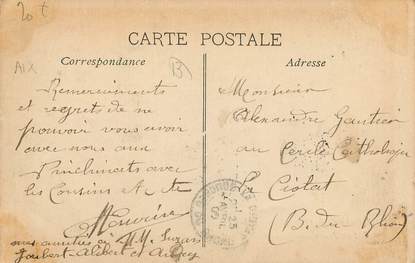 20 t
CARTE POSTALE
Correspondance
Adresse
AIX
B
Remerciements
et regrets de ne
pouvoir vous avoir
avec nous aux
avec
les Cousins
Maurice
mes amitiés à MM.
Joubert - Alibert et
Monsieur
Alexandre Gautier
au Cercle Catholique
La Ciotat
(B. du Rhône)